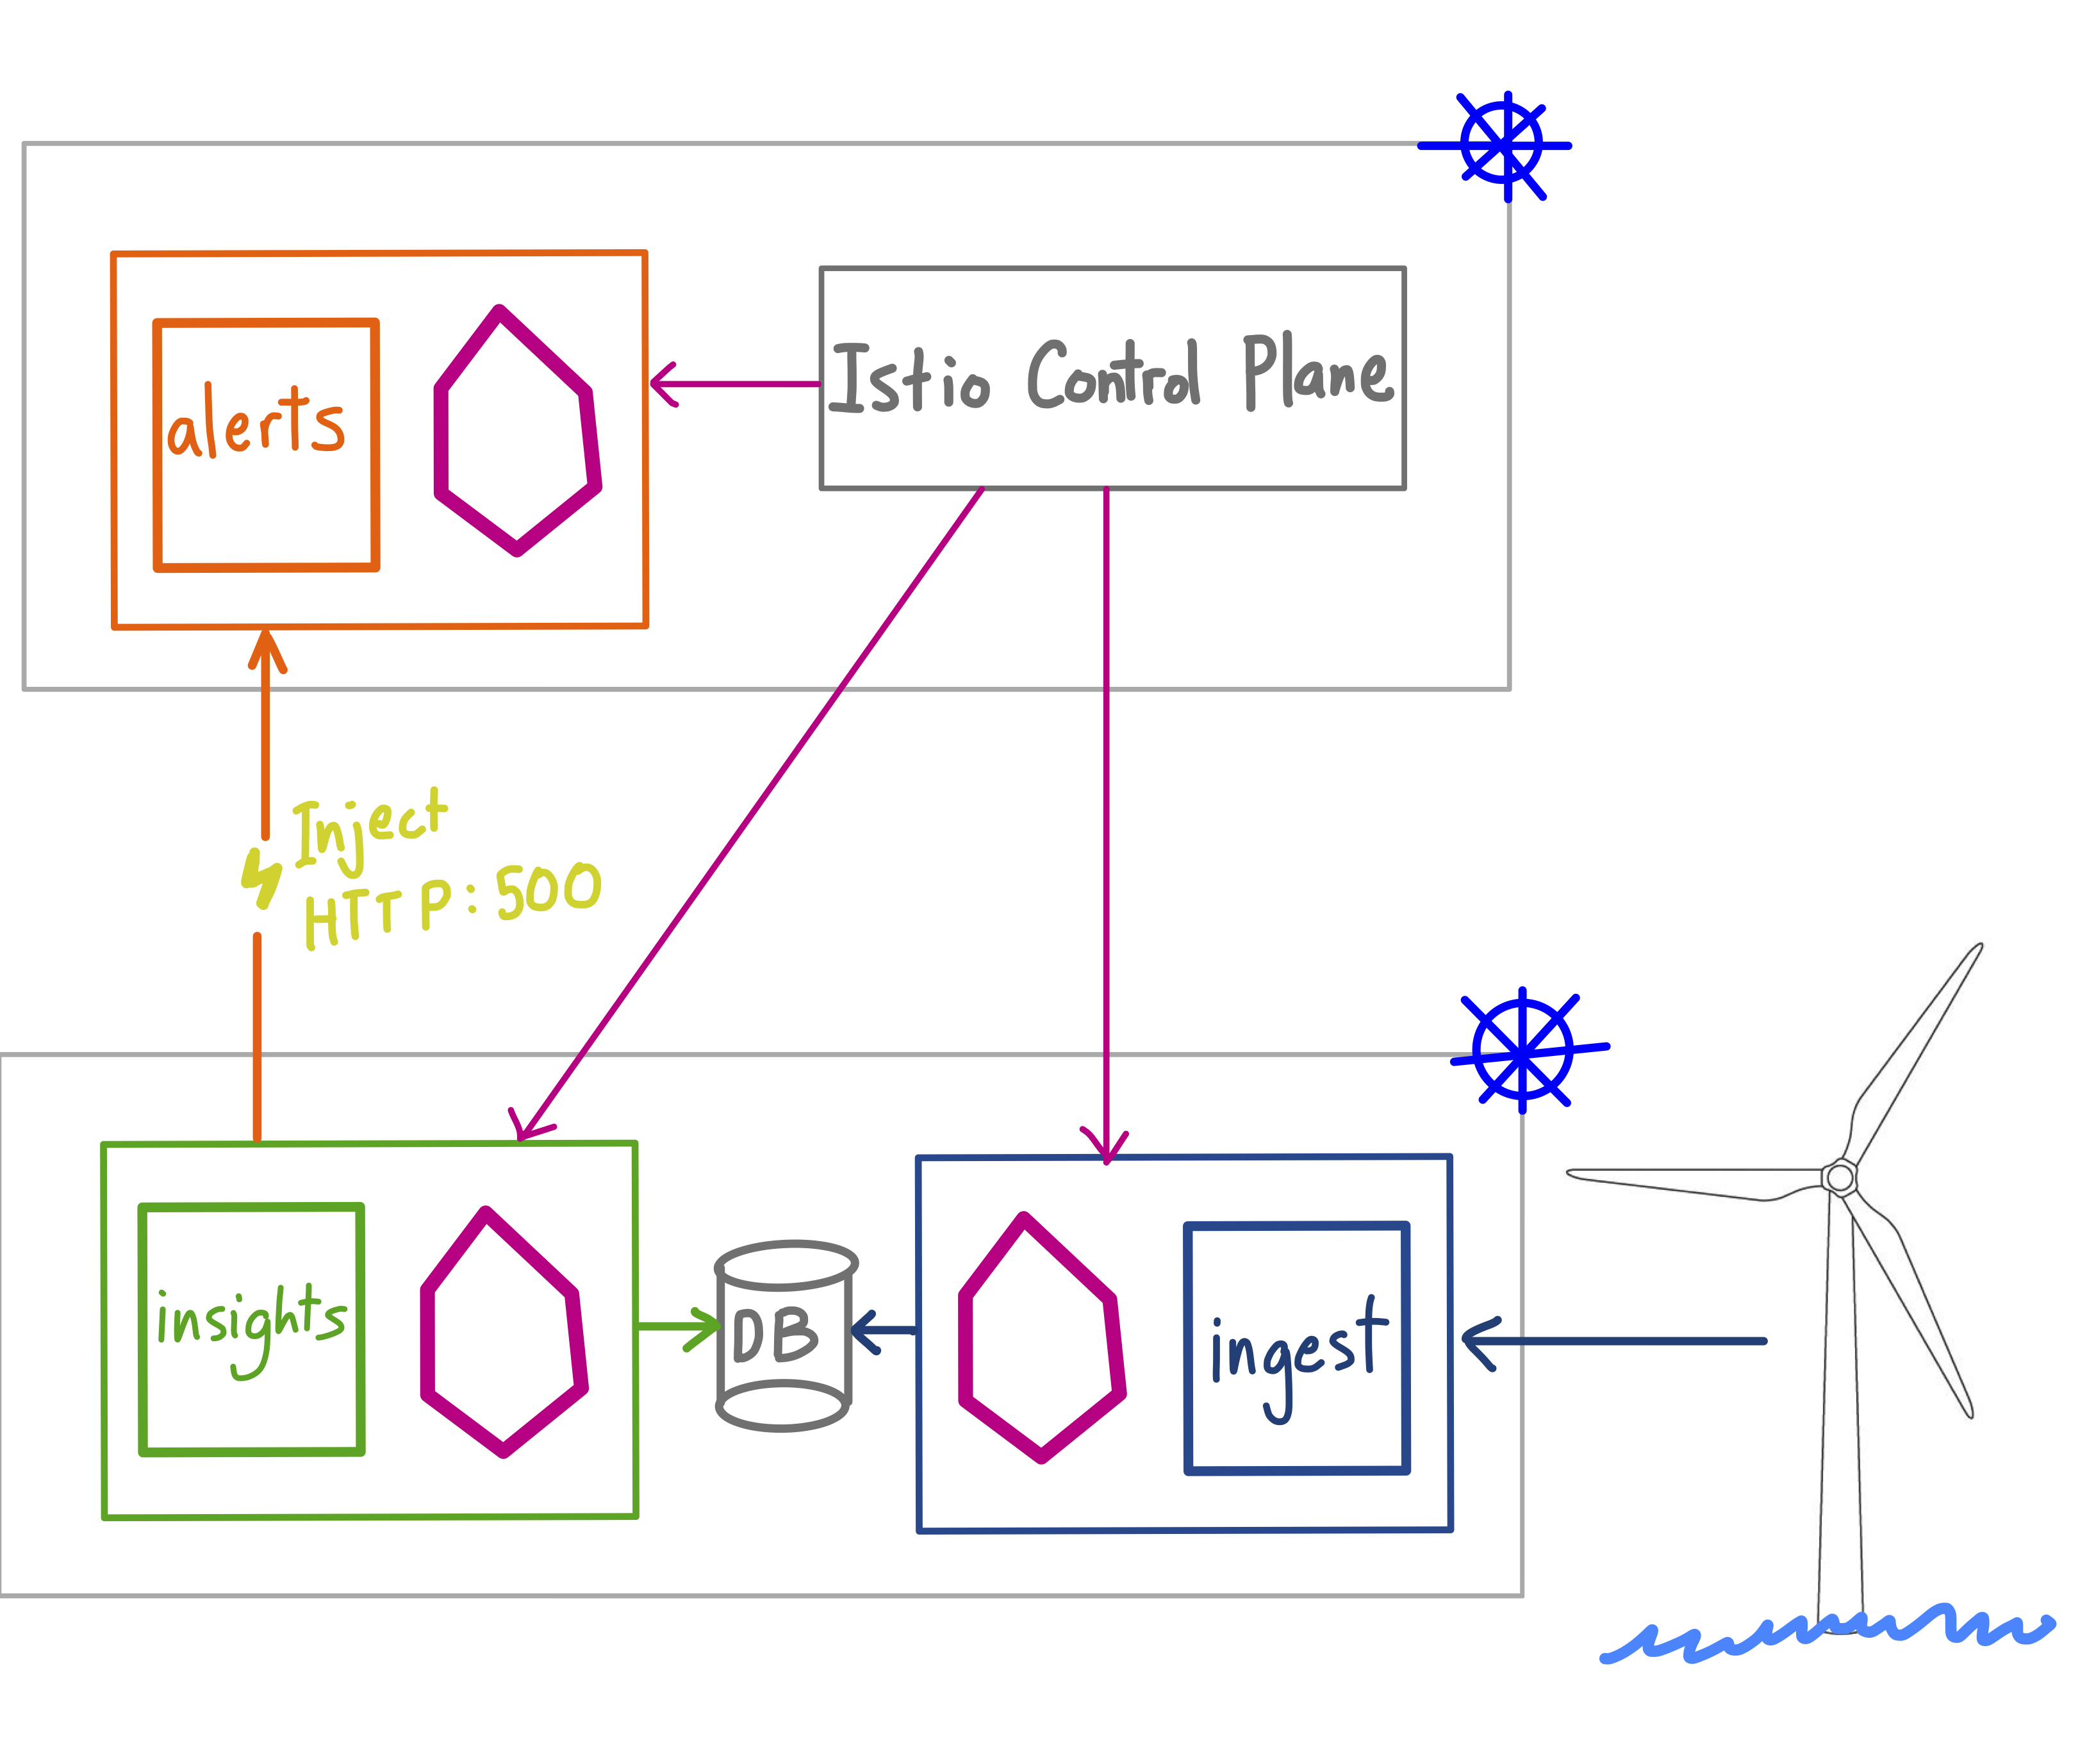 alerts
Istio Control Plane
Inject
HTTP:500
insights
DB
ingest